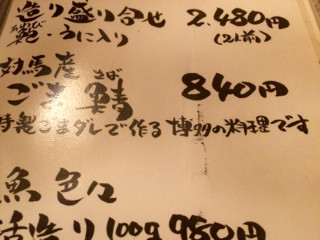 造り盛り合せ 2,480円
あわび
鮑・うに入り (2人前)
対馬産 さば
ごま鯖 840円
特製ごまダレで作る博多の料理です
魚色々
活造り100g 980円